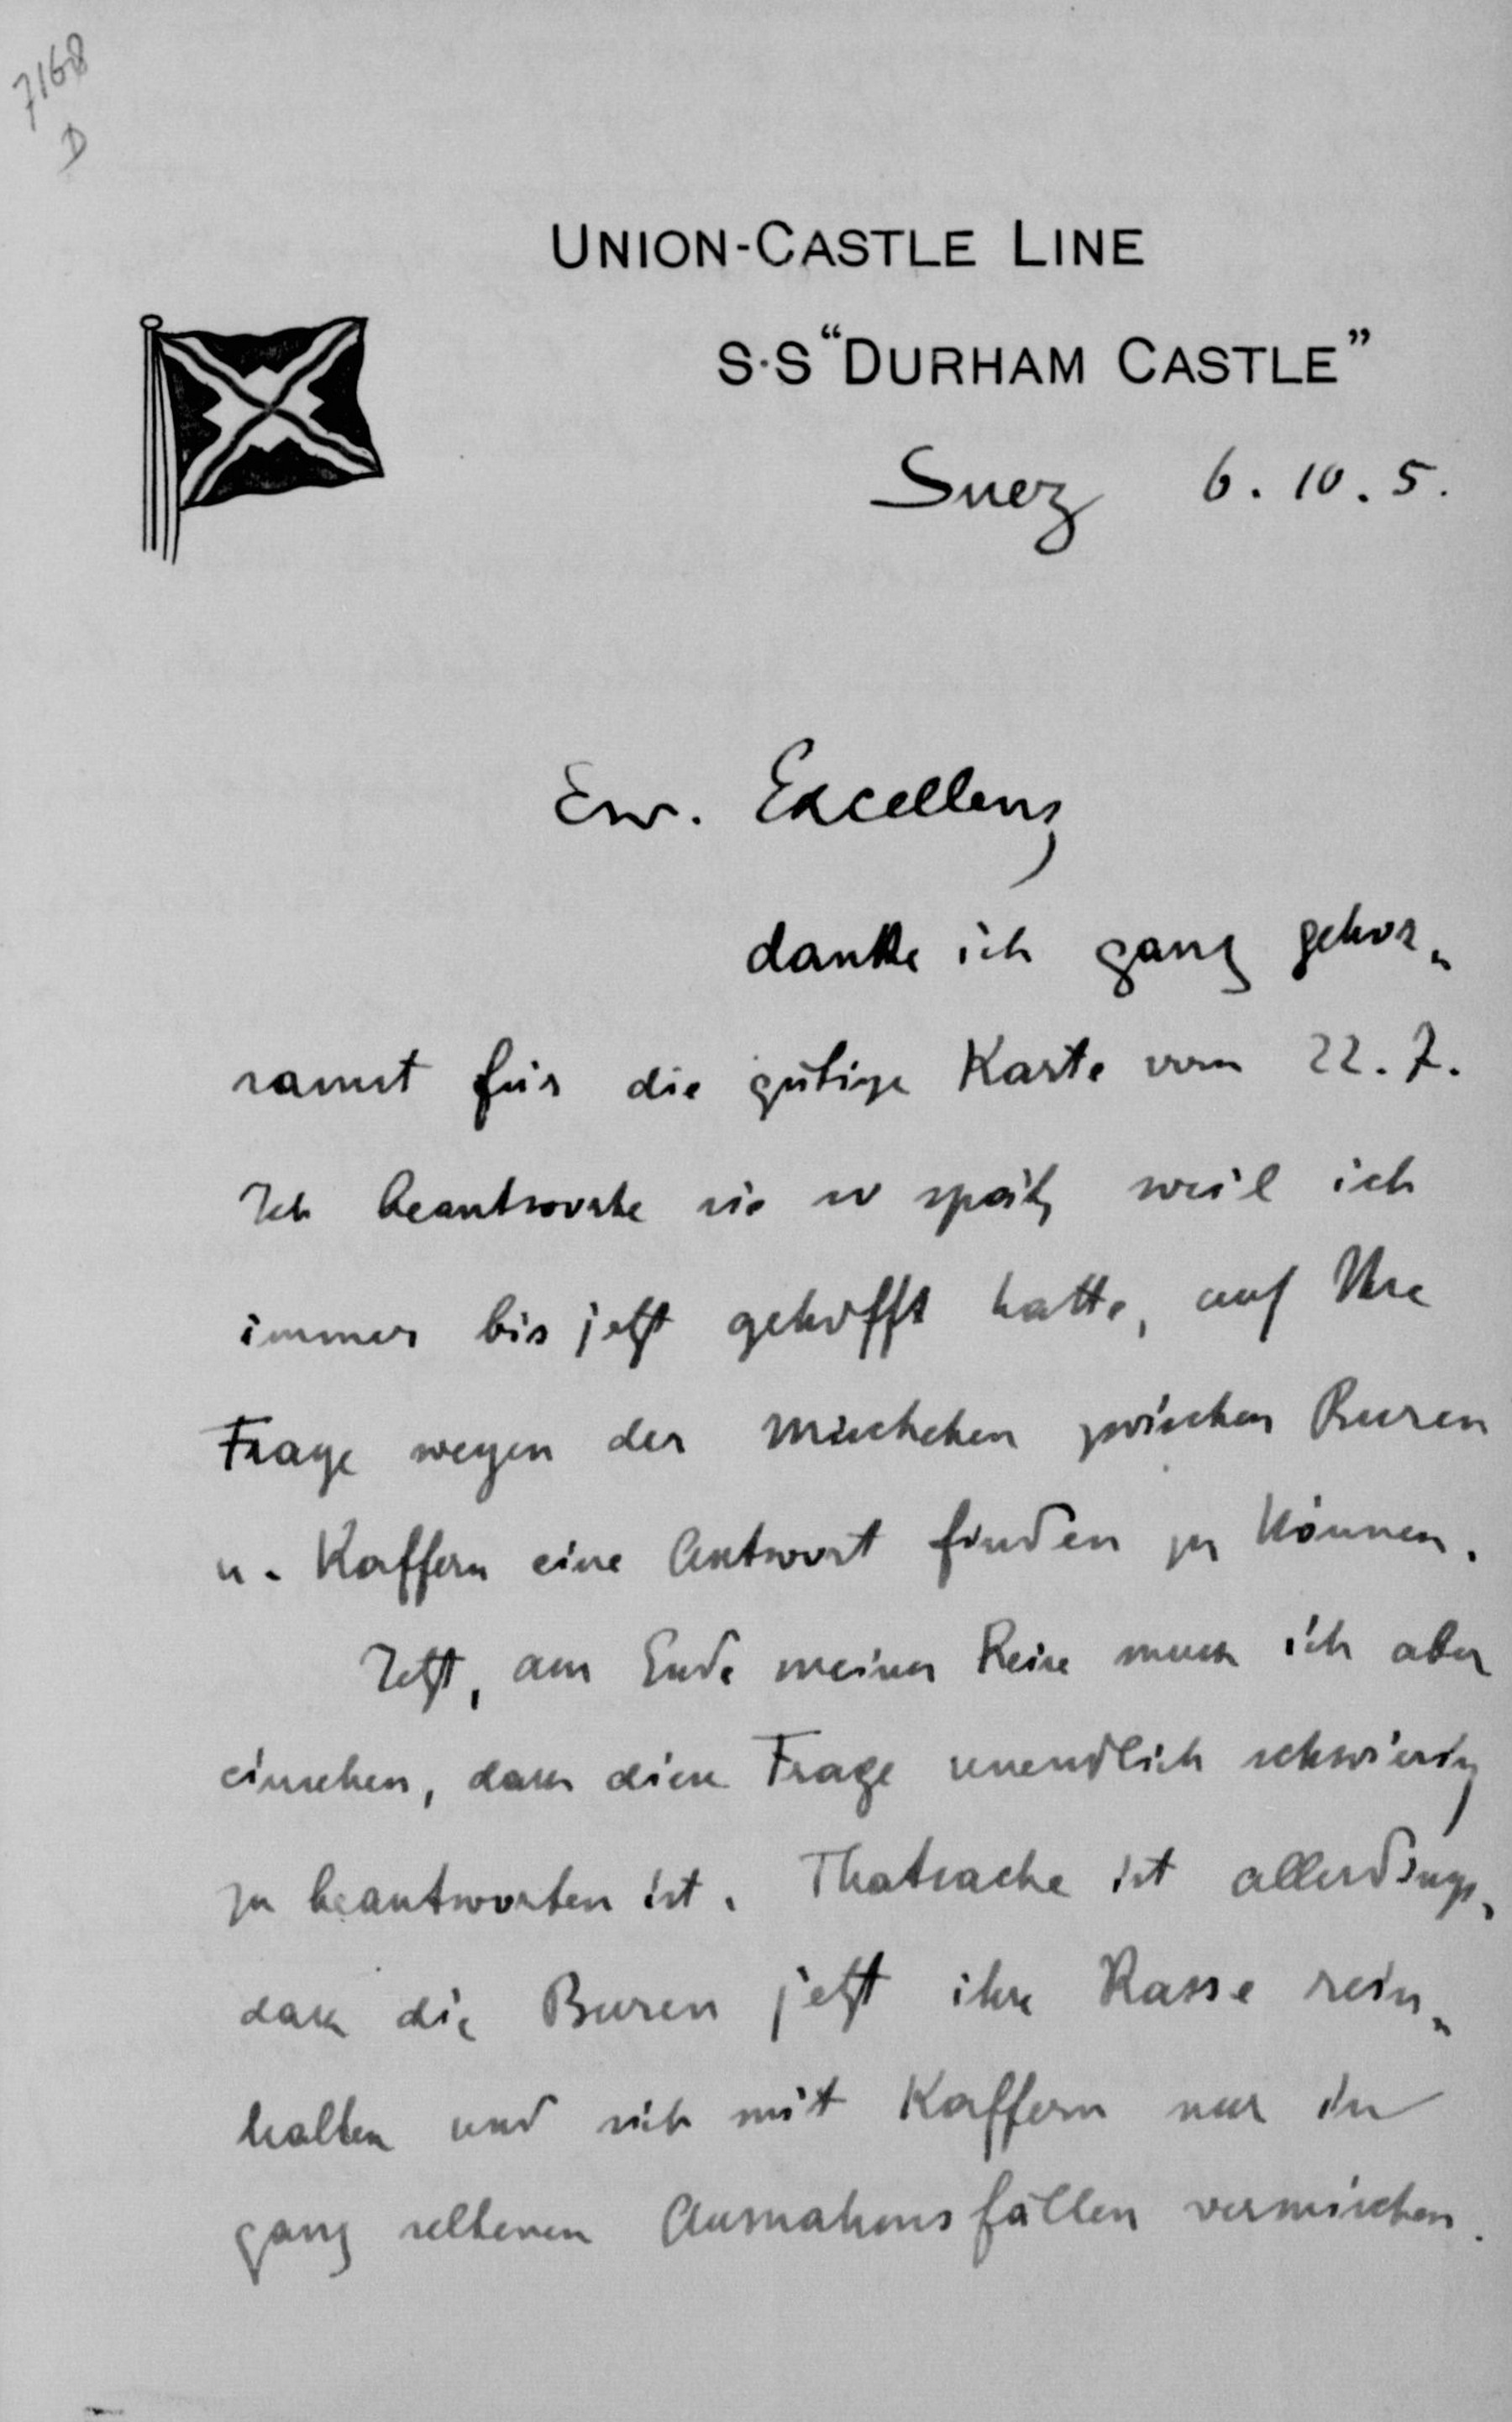 7168
D
UNION-CASTLE LINE
S·S “DURHAM CASTLE”
Suez 6. 10. 5.
Ew. Excellenz
danke ich ganz gehor-
samst für die gütige Karte vom 22. 7.
Ich beantworte sie so spät, weil ich
immer bis jetzt gehofft hatte, auf Ihre
Frage wegen der Mischehen zwischen Buren
u. Kaffern eine Antwort finden zu können.
Jetzt, am Ende meiner Reise muss ich aber
einsehen, dass diese Frage unendlich schwierig
zu beantworten ist. Thatsache ist allerdings,
dass die Buren jetzt ihre Rasse rein-
halten und sich mit Kaffern nur in
ganz seltenen Ausnahmsfällen vermischen.